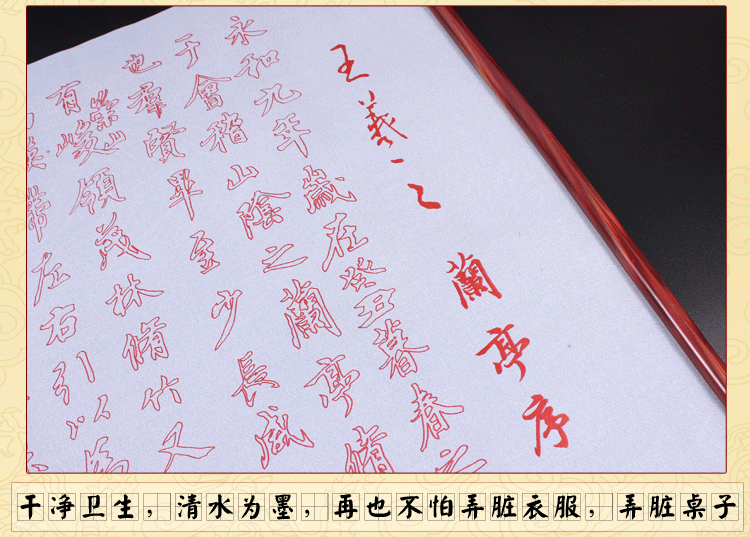 王羲之 蘭亭序
永和九年歲在癸丑暮春之
于會稽山陰之蘭亭脩
也羣賢畢至少長咸
有崇山峻領茂林脩竹又
帶左右引以為
干净卫生，清水为墨，再也不怕弄脏衣服，弄脏桌子